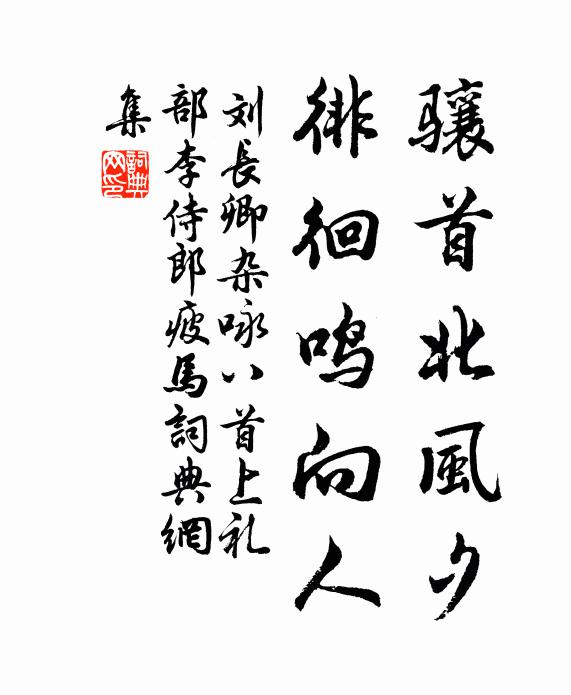 骧首北風夕
徘徊鸣向人
刘長卿杂咏八首上礼
部李侍郎疲馬詞典網
集
詞典
网印